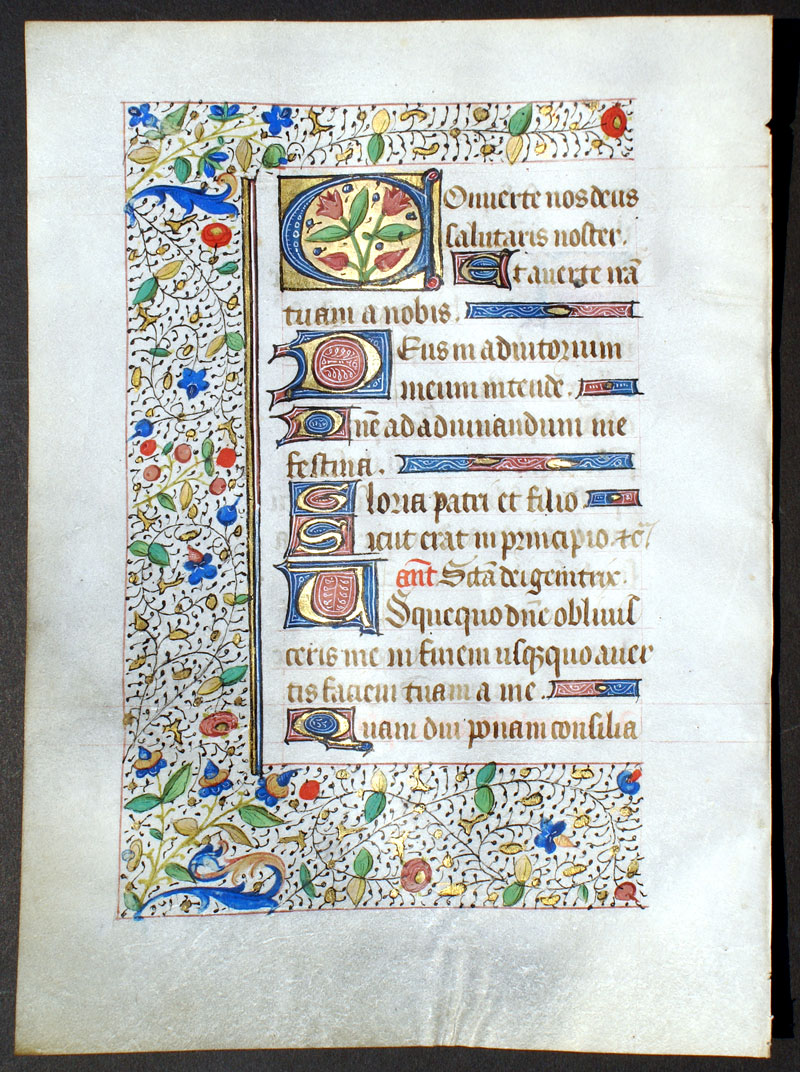 Onuerte nos deus
salutaris noster.
Et auerte irã
tuam a nobis.
Deus in adiutorium
meum intende.
Dñe ad adiuuandum me
festina.
Gloria patri et filio
Sicut erat in principio. ⁊c̃
añt Sctã dei genitrix.
Usquequo dñe obliuis
ceris me in finem usq;quo auer
tis faciem tuam a me.
Quam diu ponam consilia